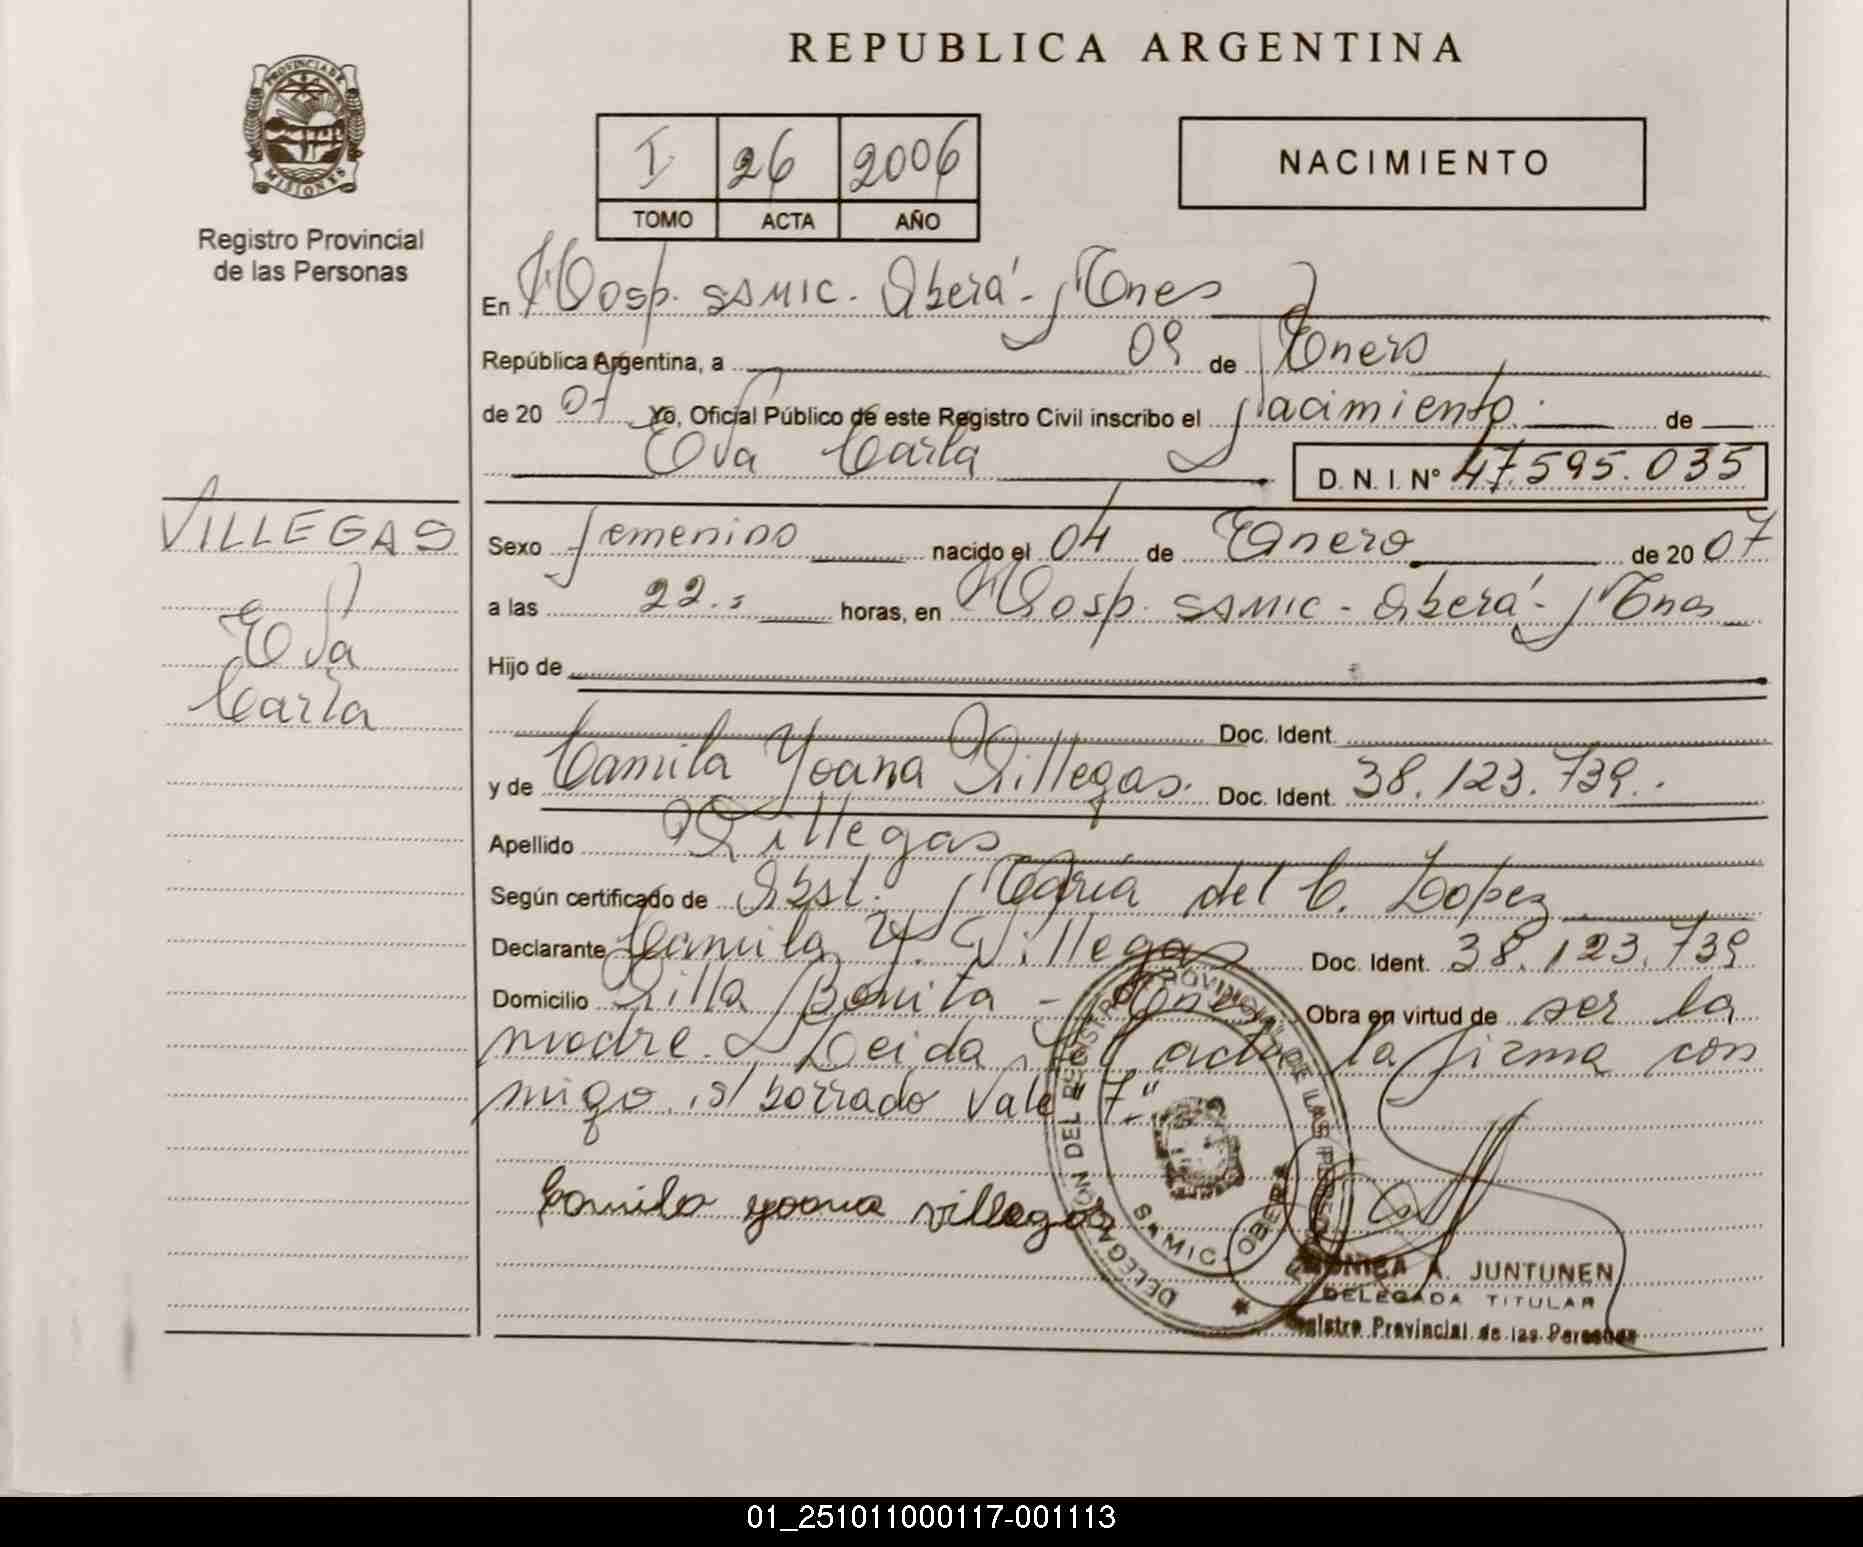 REPUBLICA ARGENTINA
PROVINCIA DE MISIONES
Registro Provincial
de las Personas
I 26 2006
TOMO ACTA AÑO
NACIMIENTO
En Hosp. SAMIC - Oberá - Mnes
República Argentina, a 09 de Enero
de 20 07 Yo, Oficial Público de este Registro Civil inscribo el nacimiento. de
Eva Carla D. N. I. N° 47.595.035
VILLEGAS
Eva
Carla
Sexo femenino nacido el 04 de Enero de 20 07
a las 22.- horas, en Hosp. SAMIC - Oberá - Mnes
Hijo de
Doc. Ident.
y de Camila Yoana Villegas. Doc. Ident. 38.123.739.-
Apellido Villegas
Según certificado de Obst. María del C. Lopez
Declarante Camila Y. Villegas Doc. Ident. 38.123.739
Domicilio Villa Bonita - Mnes Obra en virtud de ser la
madre. Leida el acta la firma con
migo. s/ borrado vale "7"
Camila yoana villegas
DELEGACIÓN DEL REGISTRO PROVINCIAL DE LAS PERSONAS
SAMIC - OBERA
MONICA A. JUNTUNEN
DELEGADA TITULAR
Registro Provincial de las Personas
01_251011000117-001113